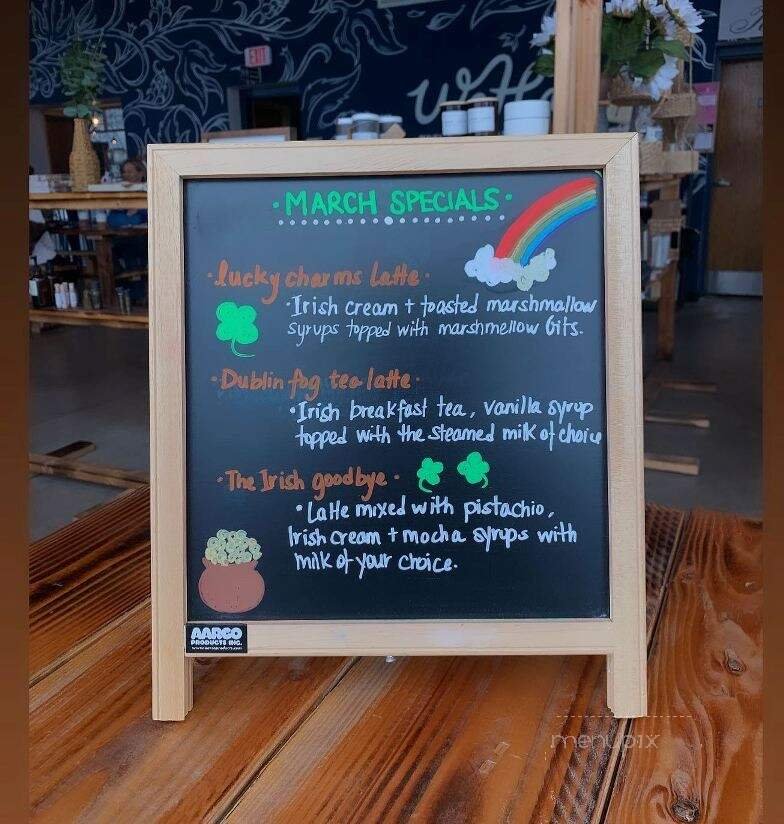 EXIT
· MARCH SPECIALS ·
· lucky charms latte ·
· Irish cream + toasted marshmallow
syrups topped with marshmellow bits.
· Dublin fog tea latte ·
· Irish breakfast tea, vanilla syrup
topped with the steamed milk of choice
· The Irish goodbye ·
· Latte mixed with pistachio,
Irish cream + mocha syrups with
milk of your choice.
AARCO
PRODUCTS INC.
www.aarcoproducts.com
menupix